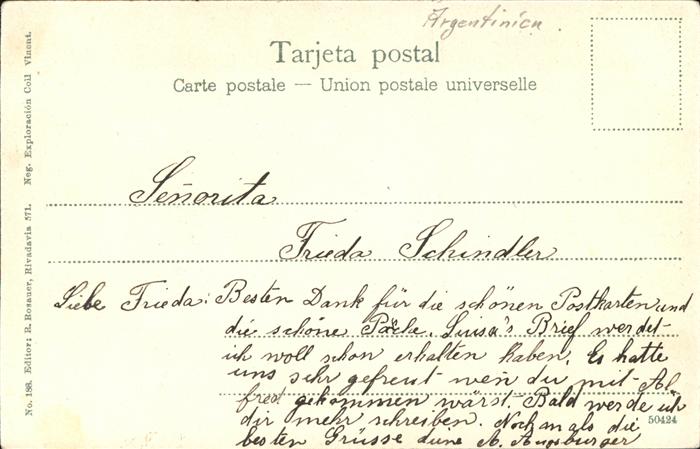 Argentinien.
Tarjeta postal
Carte postale — Union postale universelle
Señorita
Frieda Schindler
Liebe Frieda: Besten Dank für die schönen Postkarten und
die schöne Luisa's Brief werdet
ich woll schon erhalten haben. Es hatte
uns sehr gefreut wen du mit Al-
fred gekommen wärst. Bald werde ich
dir mehr schreiben. Nochmals die
besten Grüsse deine A. Augsburger
50424
No. 188. Editor: R. Rosauer, Rivadavia 571. Neg. Exploración Coll Vinent.